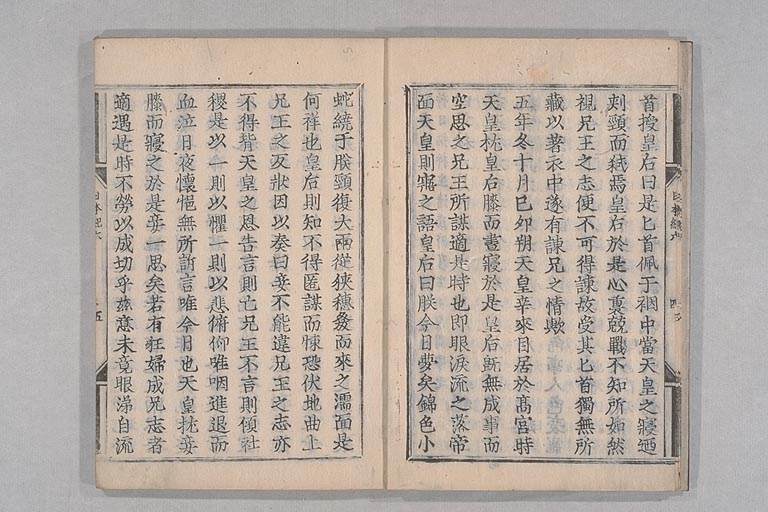 首授皇后曰是匕首佩于裀中當天皇之寢廼
刺頸而弑焉皇后於是心裏兢戰不知所如然
視兄王之志便不可得諫故受其匕首獨無所
藏以著衣中遂有諫兄之情歟
五年冬十月己卯朔天皇幸來目居於高宮時
天皇枕皇后膝而晝寢於是皇后既無成事而
空思之兄王所謀適是時也即眼淚流之落帝
面天皇則寤之語皇后曰朕今日夢矣錦色小
蛇繞于朕頸復大雨從狹穗發而來之濡面是
何祥也皇后則知不得匿謀而悚恐伏地曲上
兄王之反狀因以奏曰妾不能違兄王之志亦
不得背天皇之恩告言則亡兄王不言則傾社
稷是以一則以懼一則以悲俯仰喉咽進退而
血泣日夜懷悒無所訴言唯今日也天皇枕妾
膝而寢之於是妾一思矣若有狂婦成兄志者
適遇是時不勞以成功乎茲意未竟眼涕自流